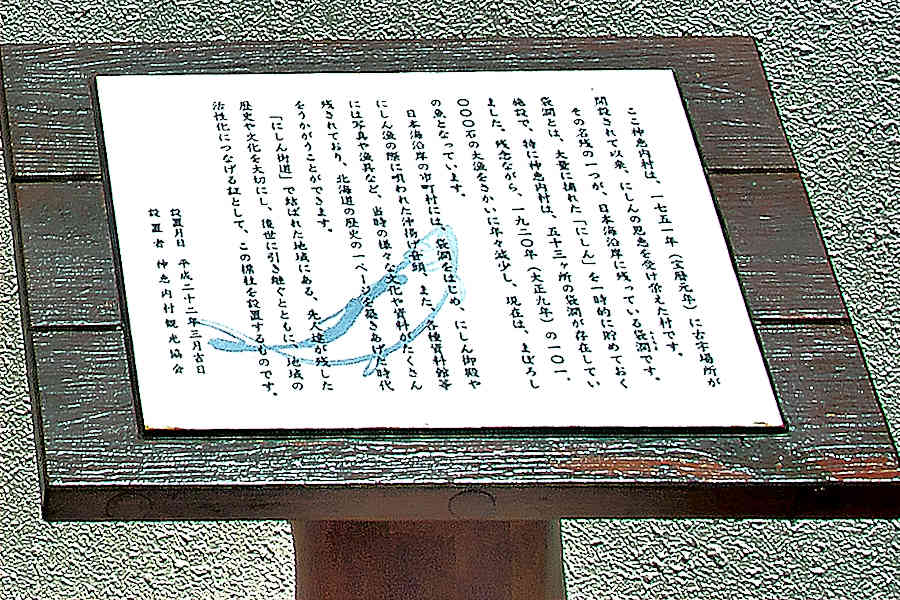 ここ神恵内村は、一七五一年(宝暦元年)に古宇場所が
開設されて以来、にしんの恩恵を受け栄えた村です。
その名残の一つが、日本海沿岸に残っている袋澗です。
袋澗とは、大量に捕れた「にしん」を一時的に貯めておく
施設で、特に神恵内村は、五十三ヶ所の袋澗が存在してい
ました。残念ながら、一九二〇年(大正九年)の一〇一、
〇〇〇石の大漁をさかいに年々減少し、現在は、まぼろし
の魚となっています。
日本海沿岸の市町村には、袋澗をはじめ、にしん御殿や
にしん漁の際に唄われた沖揚げ音頭、また、各種資料館等
には写真や漁具など、当時の様々な文化や資料がたくさん
残されており、北海道の歴史の一ページを築きあげた時代
をうかがうことができます。
「にしん街道」で結ばれた地域にある、先人達が残した
歴史や文化を大切にし、後世に引き継ぐとともに、地域の
活性化につなげる証として、この標柱を設置するものです。
設置月日 平成二十二年三月吉日
設置者 神恵内村観光協会